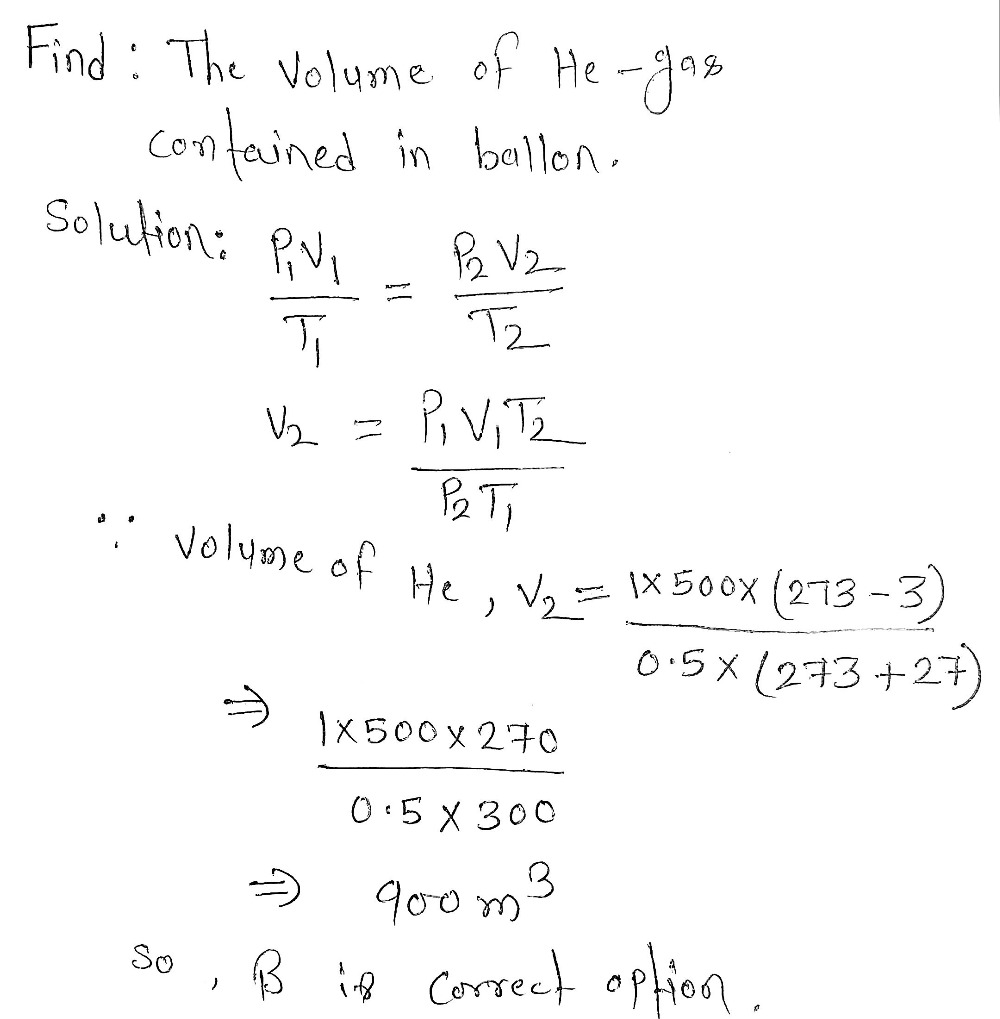 Find : The Volume of He-gas
contained in ballon.
Solution: P₁V₁ / T₁ = P₂V₂ / T₂
V₂ = P₁V₁T₂ / P₂T₁
∵ volume of He, V₂ = 1×500×(273-3) / 0.5×(273+27)
⇒ 1×500×270 / 0.5×300
⇒ 900 m³
So, B is correct option.